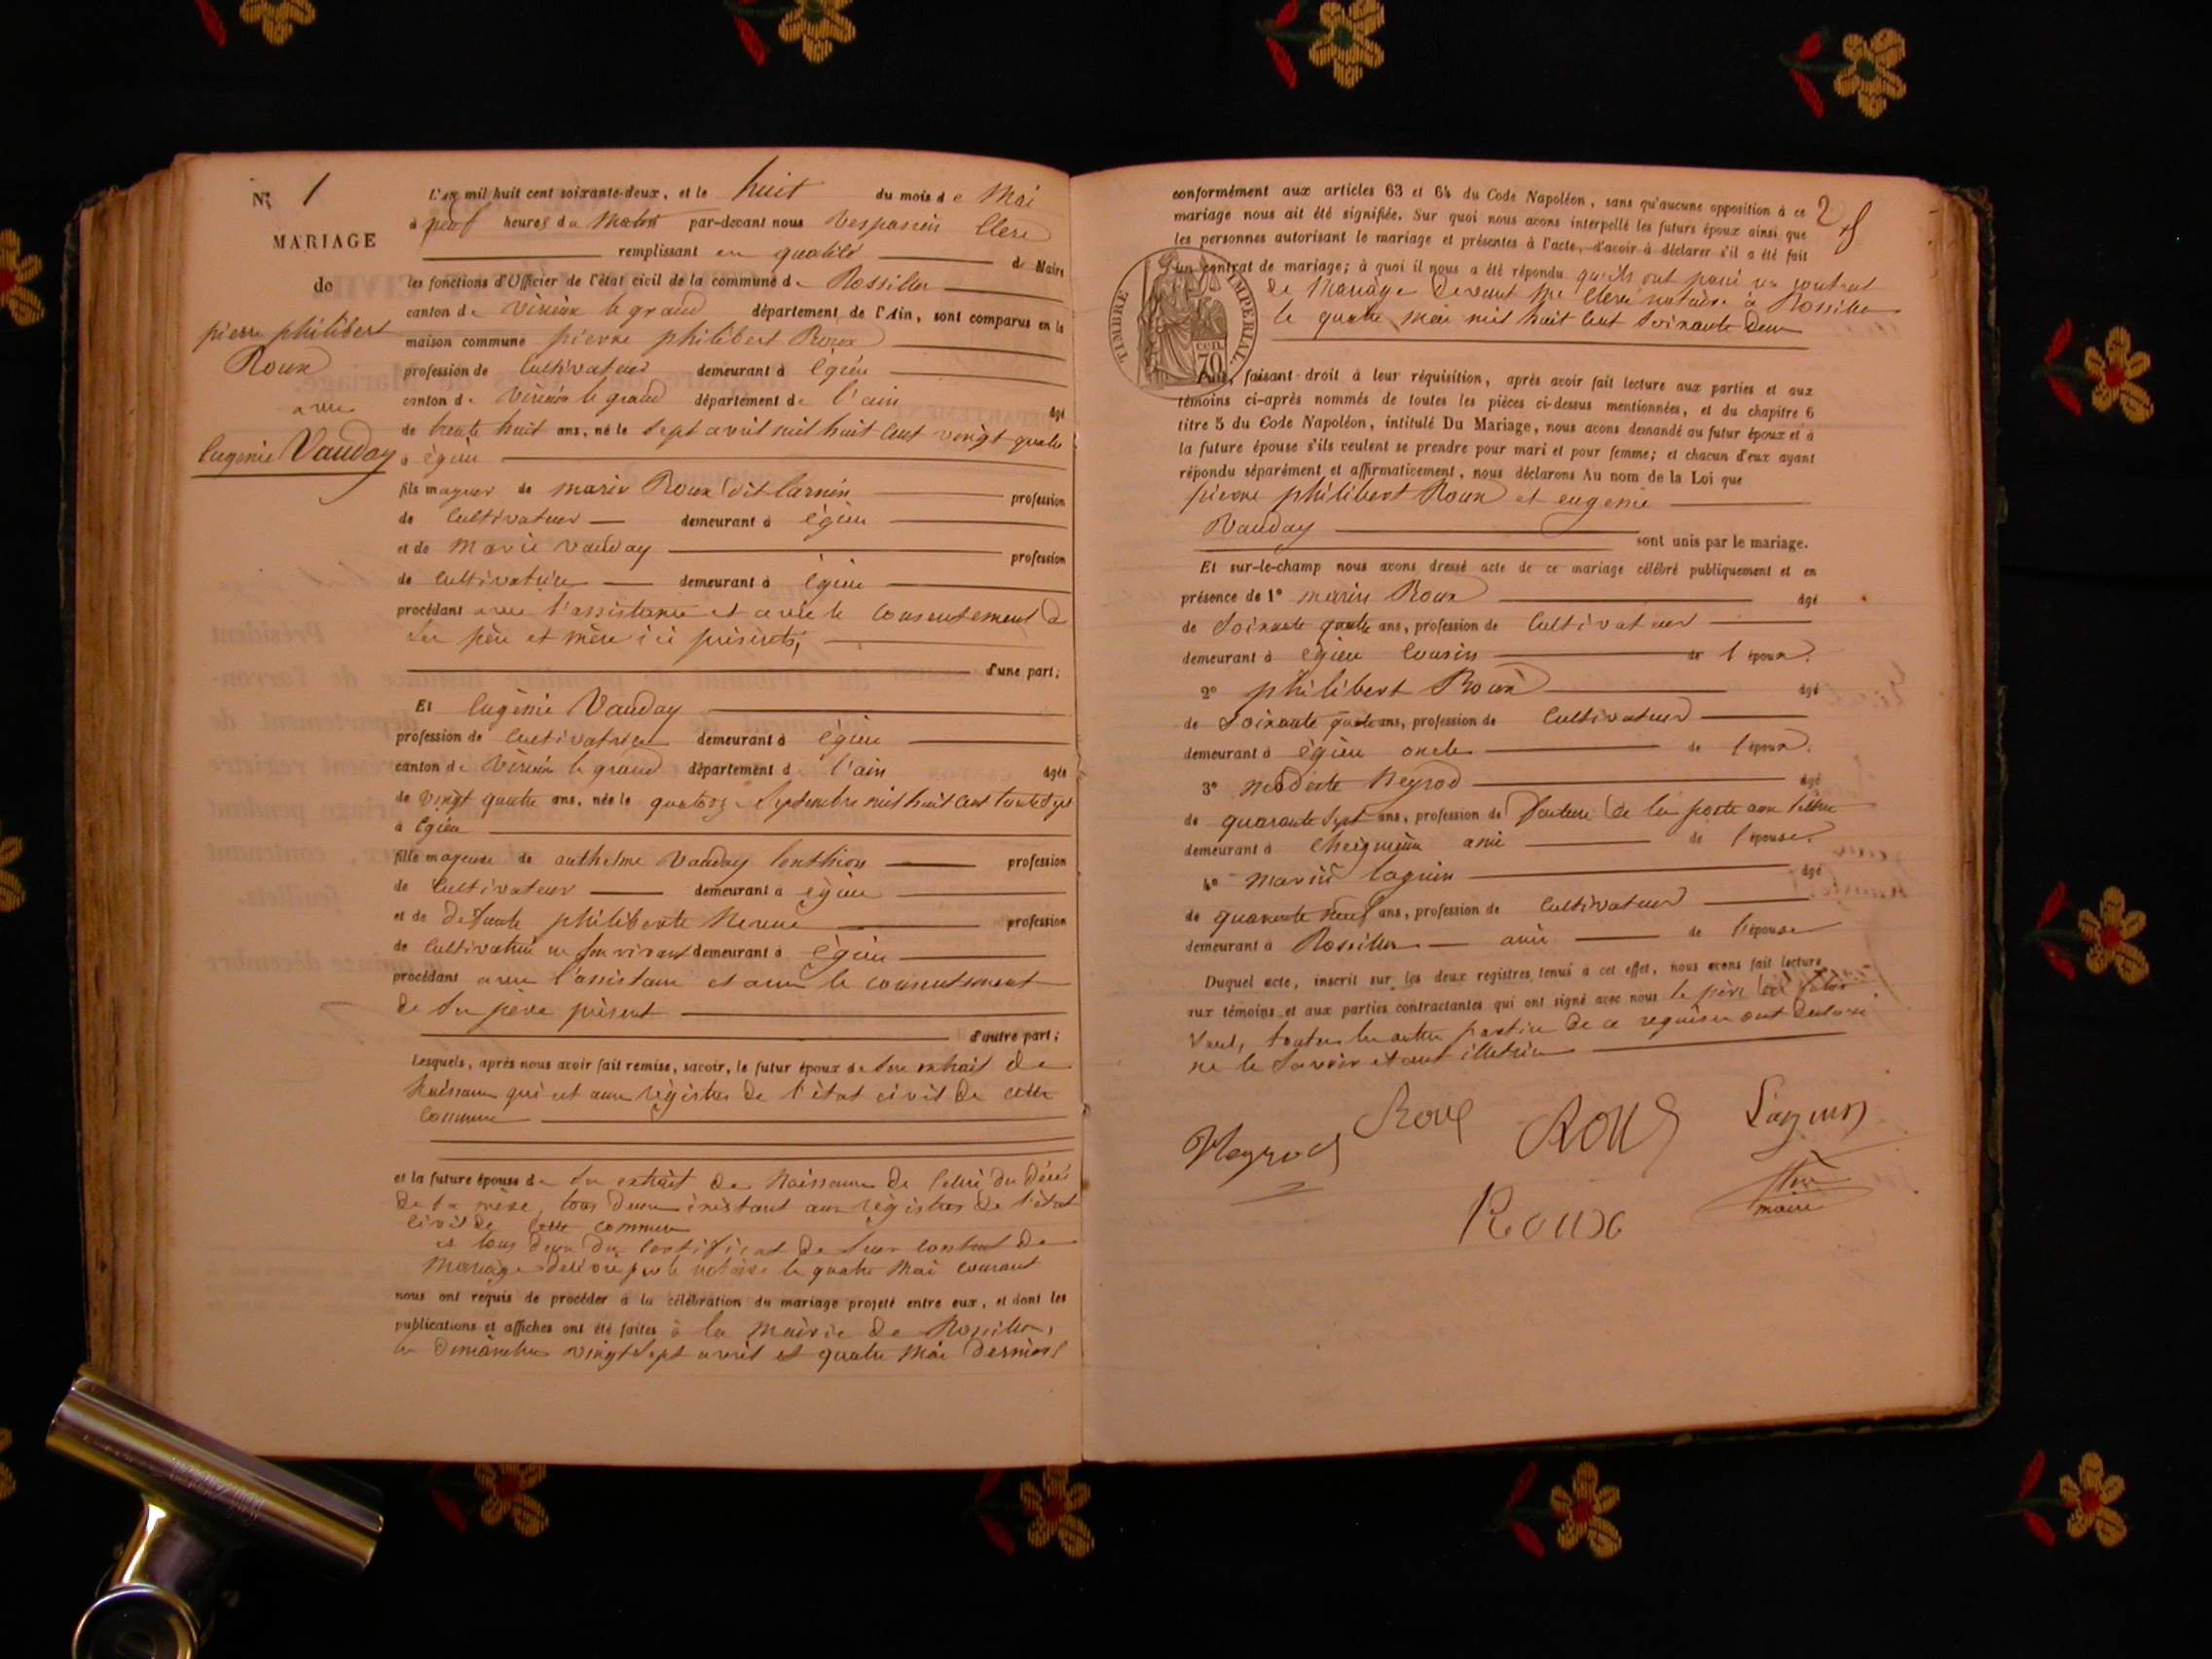 N° 1
MARIAGE
de
pierre philibert
Roux
avec
Eugénie Vauday
L'an mil huit cent soixante-deux, et le huit du mois de Mai
à neuf heures du Matin par-devant nous Vespasien Clerc
remplissant en qualité de Maire
les fonctions d'Officier de l'état civil de la commune de Rossillon
canton de virieu le grand département de l'Ain, sont comparus en la
maison commune pierre philibert Roux
profession de Cultivateur demeurant à égieu
canton de Virieu le grand département de l'ain âgé
de trente huit ans, né le Sept avril mil huit Cent vingt quatre
à égieu
fils majeur de marin Roux dit
profession
de Cultivateur demeurant à égieu
et de Marie Vauday
profession
de Cultivatrice demeurant à égieu
procédant avec l'assistance et avec le Consentement de
Ses père et mère ici présents,
d'une part;
Et Eugénie Vauday
profession de Cultivatrice demeurant à égieu
canton de Virieu le grand département de l'ain âgée
de Vingt quatre ans, née le quatorze Septembre mil huit Cent trente Sept
à égieu
fille majeure de anthelme Vauday profession
de Cultivateur demeurant à égieu
et de défunte philiberte profession
de Cultivatrice en Son vivant demeurant à égieu
procédant avec l'assistance et avec le consentement
de Son père présent
d'autre part;
Lesquels, après nous avoir fait remise, savoir, le futur époux de Son extrait de
Naissance qui est aux régistres de l'état civil de cette
Commune
et la future épouse de Son extrait de Naissance de Celui du décès
de Sa mère, tous deux existant aux régistres de l'état
civil de cette commune
et tous deux du Certificat de Leur Contrat de
Mariage délivré par le notaire le quatre Mai courant
nous ont requis de procéder à la célébration du mariage projeté entre eux, et dont les
publications et affiches ont été faites à la Mairie de Rossillon,
les Dimanches vingt Sept avril et quatre Mai dernier
2
conformément aux articles 63 et 64 du Code Napoléon, sans qu'aucune opposition à ce
mariage nous ait été signifiée. Sur quoi nous avons interpellé les futurs époux ainsi que
les personnes autorisant le mariage et présentes à l'acte, d'avoir à déclarer s'il a été fait
un contrat de mariage; à quoi il nous a été répondu qu'ils ont passé un contrat
de Mariage Devant Me Clerc notaire à Rossillon
le quatre Mai mil huit Cent Soixante Deux
TIMBRE IMPERIAL.
70 cen.
Puis, faisant droit à leur réquisition, après avoir fait lecture aux parties et aux
témoins ci-après nommés de toutes les pièces ci-dessus mentionnées, et du chapitre 6
titre 5 du Code Napoléon, intitulé Du Mariage, nous avons demandé au futur époux et à
la future épouse s'ils veulent se prendre pour mari et pour femme; et chacun d'eux ayant
répondu séparément et affirmativement, nous déclarons Au nom de la Loi que
pierre philibert Roux et eugenie
Vauday
sont unis par le mariage.
Et sur-le-champ nous avons dressé acte de ce mariage célébré publiquement et en
présence de 1° marin Roux âgé
de Soixante quatre ans, profession de Cultivateur
demeurant à égieu Cousin de l'époux.
2° philibert Roux âgé
de Soixante quatre ans, profession de Cultivateur
demeurant à égieu oncle de l'époux.
3° Modeste Neyrod âgé
de quarante Sept ans, profession de facteur de la poste aux lettres
demeurant à Cheignieu ami de l'épouse.
4° Marin Laguin âgé
de quarante neuf ans, profession de Cultivateur
demeurant à Rossillon ami de l'épouse
Duquel acte, inscrit sur les deux registres tenus à cet effet, nous avons fait lecture
aux témoins et aux parties contractantes qui ont signé avec nous le père
toutes les autres parties de ce requises ont Déclaré
ne le Savoir étant illettrées
Neyrod Roux Roux Laguin
Roux
Clerc
maire